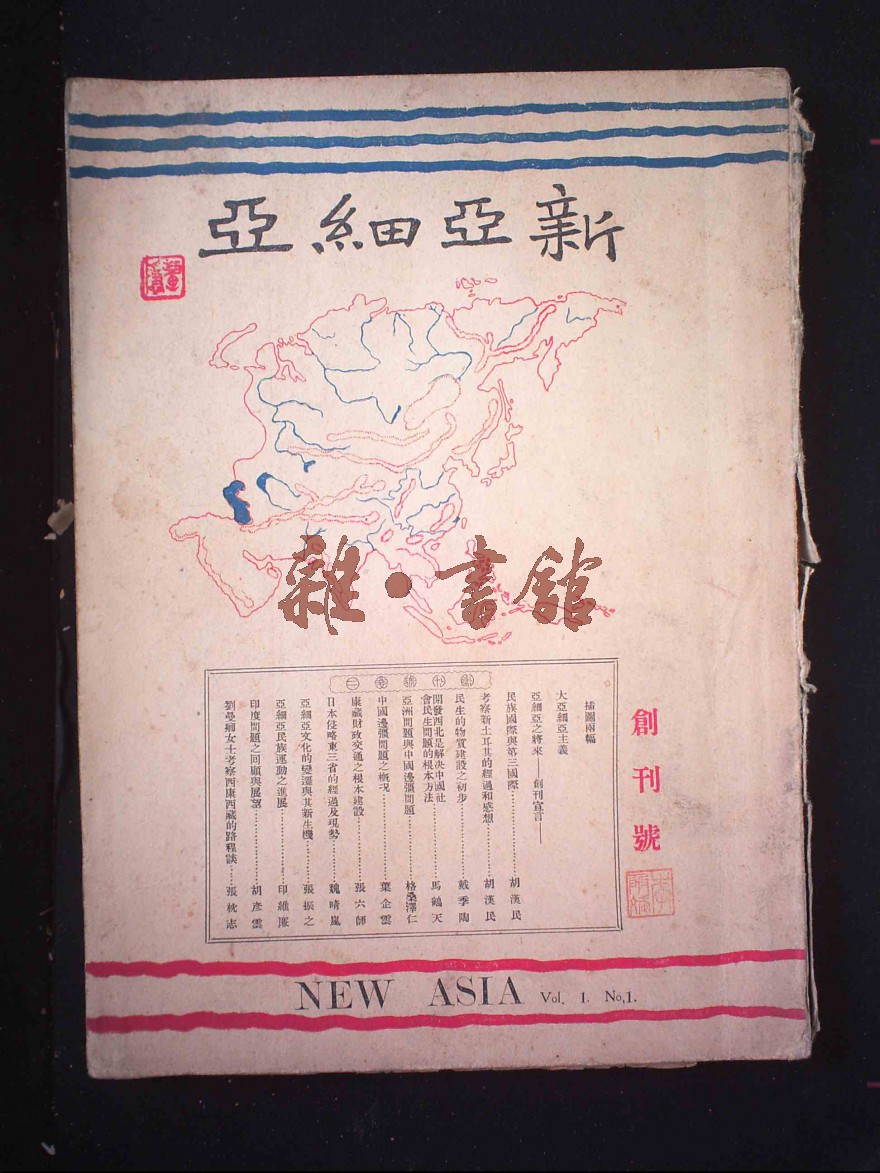 新亞細亞
雜·書館
創刊號
創刊號要目
插圖兩幅
大亞細亞主義
亞細亞之將來——創刊宣言——
民族國際與第三國際…………胡漢民
考察新土耳其的經過和感想……胡漢民
民生的物質建設之初步…………戴季陶
開發西北是解决中國社會民生問題的根本方法……馬鶴天
亞洲問題與中國邊疆問題………格桑澤仁
中國邊疆問題之概况……………葉企雲
康藏財政交通之根本建設………張六師
日本侵略東三省的經過及現勢……魏晴嵐
亞細亞文化的變遷與其新生機……張振之
亞細亞民族運動之進展…………印維廉
印度問題之回顧與展望…………胡彥雲
劉曼卿女士考察西康西藏的路程談……張枕志
NEW ASIA Vol. 1. No,1.